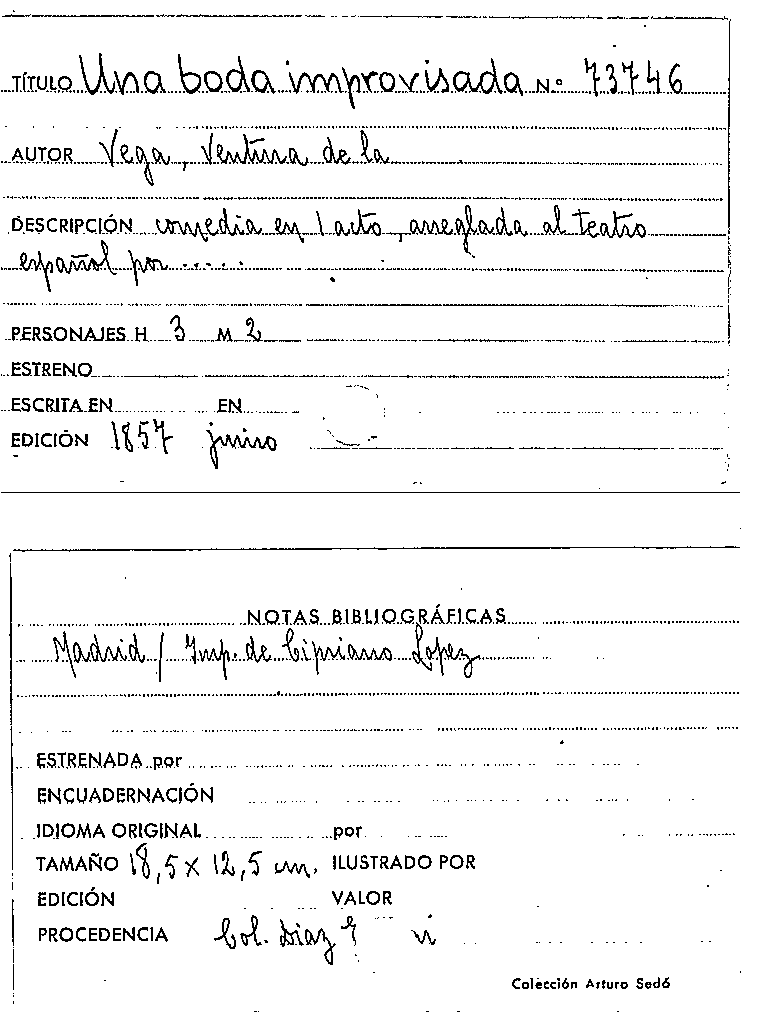 TÍTULO Una boda improvisada Nº 73746
AUTOR Vega, Ventura de la
DESCRIPCIÓN comedia en 1 acto, arreglada al teatro
español por .....
PERSONAJES H 3 M 2
ESTRENO
ESCRITA EN EN
EDICIÓN 1857 junio
NOTAS BIBLIOGRÁFICAS
Madrid / Imp. de Cipriano Lopez
ESTRENADA por
ENCUADERNACIÓN
IDIOMA ORIGINAL por
TAMAÑO 18,5 x 12,5 cm. ILUSTRADO POR
EDICIÓN VALOR
PROCEDENCIA Col. Diaz
Colección Arturo Sedó